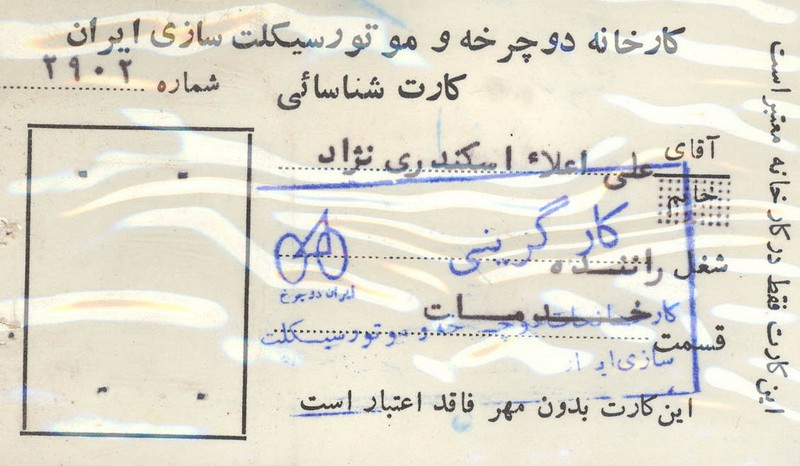 کارخانه دوچرخه و موتورسیکلت سازی ایران
کارت شناسائی
شماره ۲۹۰۲
آقای علی اعلاء اسکندری نژاد
خانم
کارگزینی
شغل راننده
ایران دوچرخ
خدمات
کارخانجات دوچرخه و موتورسیکلت
قسمت
سازی ایران
این کارت بدون مهر فاقد اعتبار است
این کارت فقط در کارخانه معتبر است